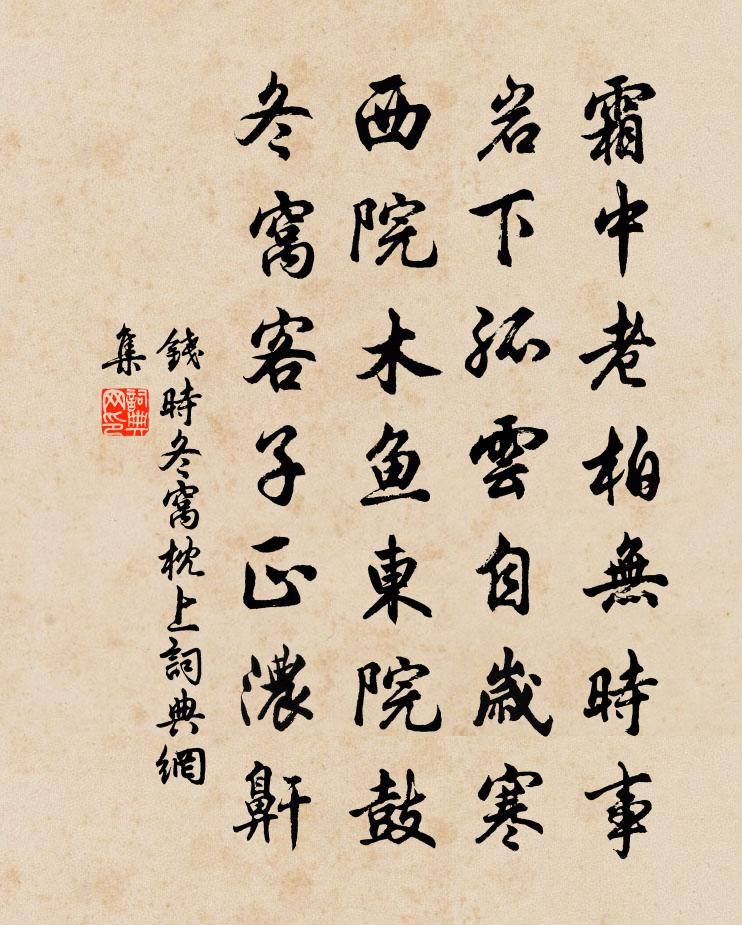 霜中老柏無時事
岩下孤雲自歲寒
西院木鱼東院鼓
冬窩客子正濃鼾
錢時冬窩枕上詞典網
集
詞典
网印